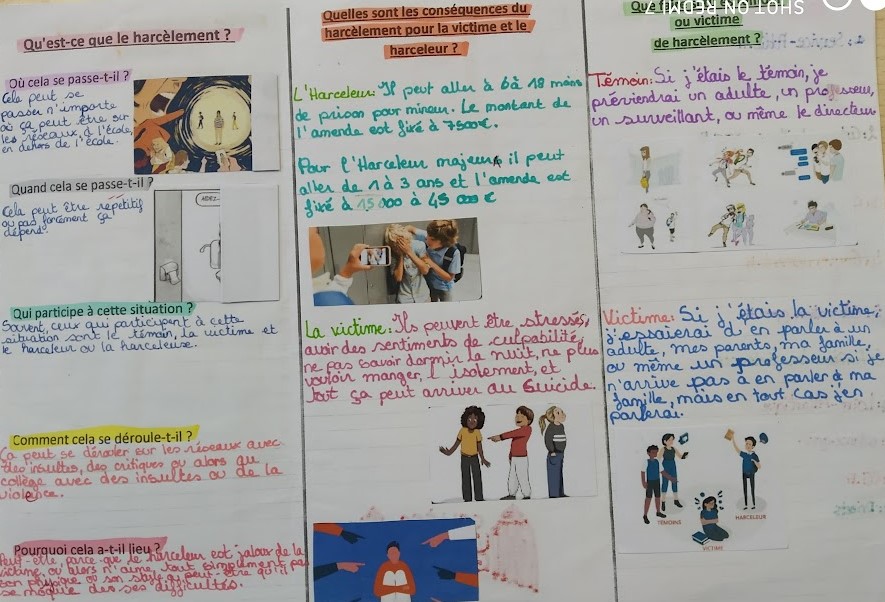 Qu'est-ce que le harcèlement ?
Où cela se passe-t-il ?
Cela peut se
passer n'importe
où ça peut être sur
les réseaux, à l'école,
en dehors de l'école.
Quand cela se passe-t-il ?
Cela peut être répétitif
ou pas forcément ça
dépend.
Qui participe à cette situation ?
Souvent, ceux qui participent à cette
situation sont le témoin, la victime et
le harceleur ou la harceleuse.
Comment cela se déroule-t-il ?
ça peut se dérouler sur les réseaux avec
des insultes, des critiques ou alors au
collège avec des insultes ou de la
violence.
Pourquoi cela a-t-il lieu ?
Peut-être, parce que le harceleur est jaloux de la
victime, ou alors n'aime, tout simplement pas
son physique ou son style ou peut-être qu'il
se moque des ses difficultés.
Quelles sont les conséquences du
harcèlement pour la victime et le
harceleur ?
L'Harceleur: Il peut aller à 6 à 18 mois
de prison pour mineur. Le montant de
l'amende est fixé à 7500€.
Pour l'Harceleur majeur il peut
aller de 1 à 3 ans et l'amende est
fixé à 15 000 à 45 000 €
La victime: Ils peuvent être stressés,
avoir des sentiments de culpabilité,
ne pas savoir dormir la nuit, ne plus
vouloir manger, l'isolement, et
tout ça peut arriver au suicide.
ou victime
de harcèlement ?
Témoin: Si j'étais le témoin, je
préviendrai un adulte, un professeur,
un surveillant, ou même le directeur
Victime: Si j'étais la victime,
j'essaierai d'en parler à un
adulte, mes parents, ma famille,
ou même un professeur si je
n'arrive pas à en parler à ma
famille, mais en tout cas j'en
parlerai.
TÉMOINS
HARCELEUR
VICTIME